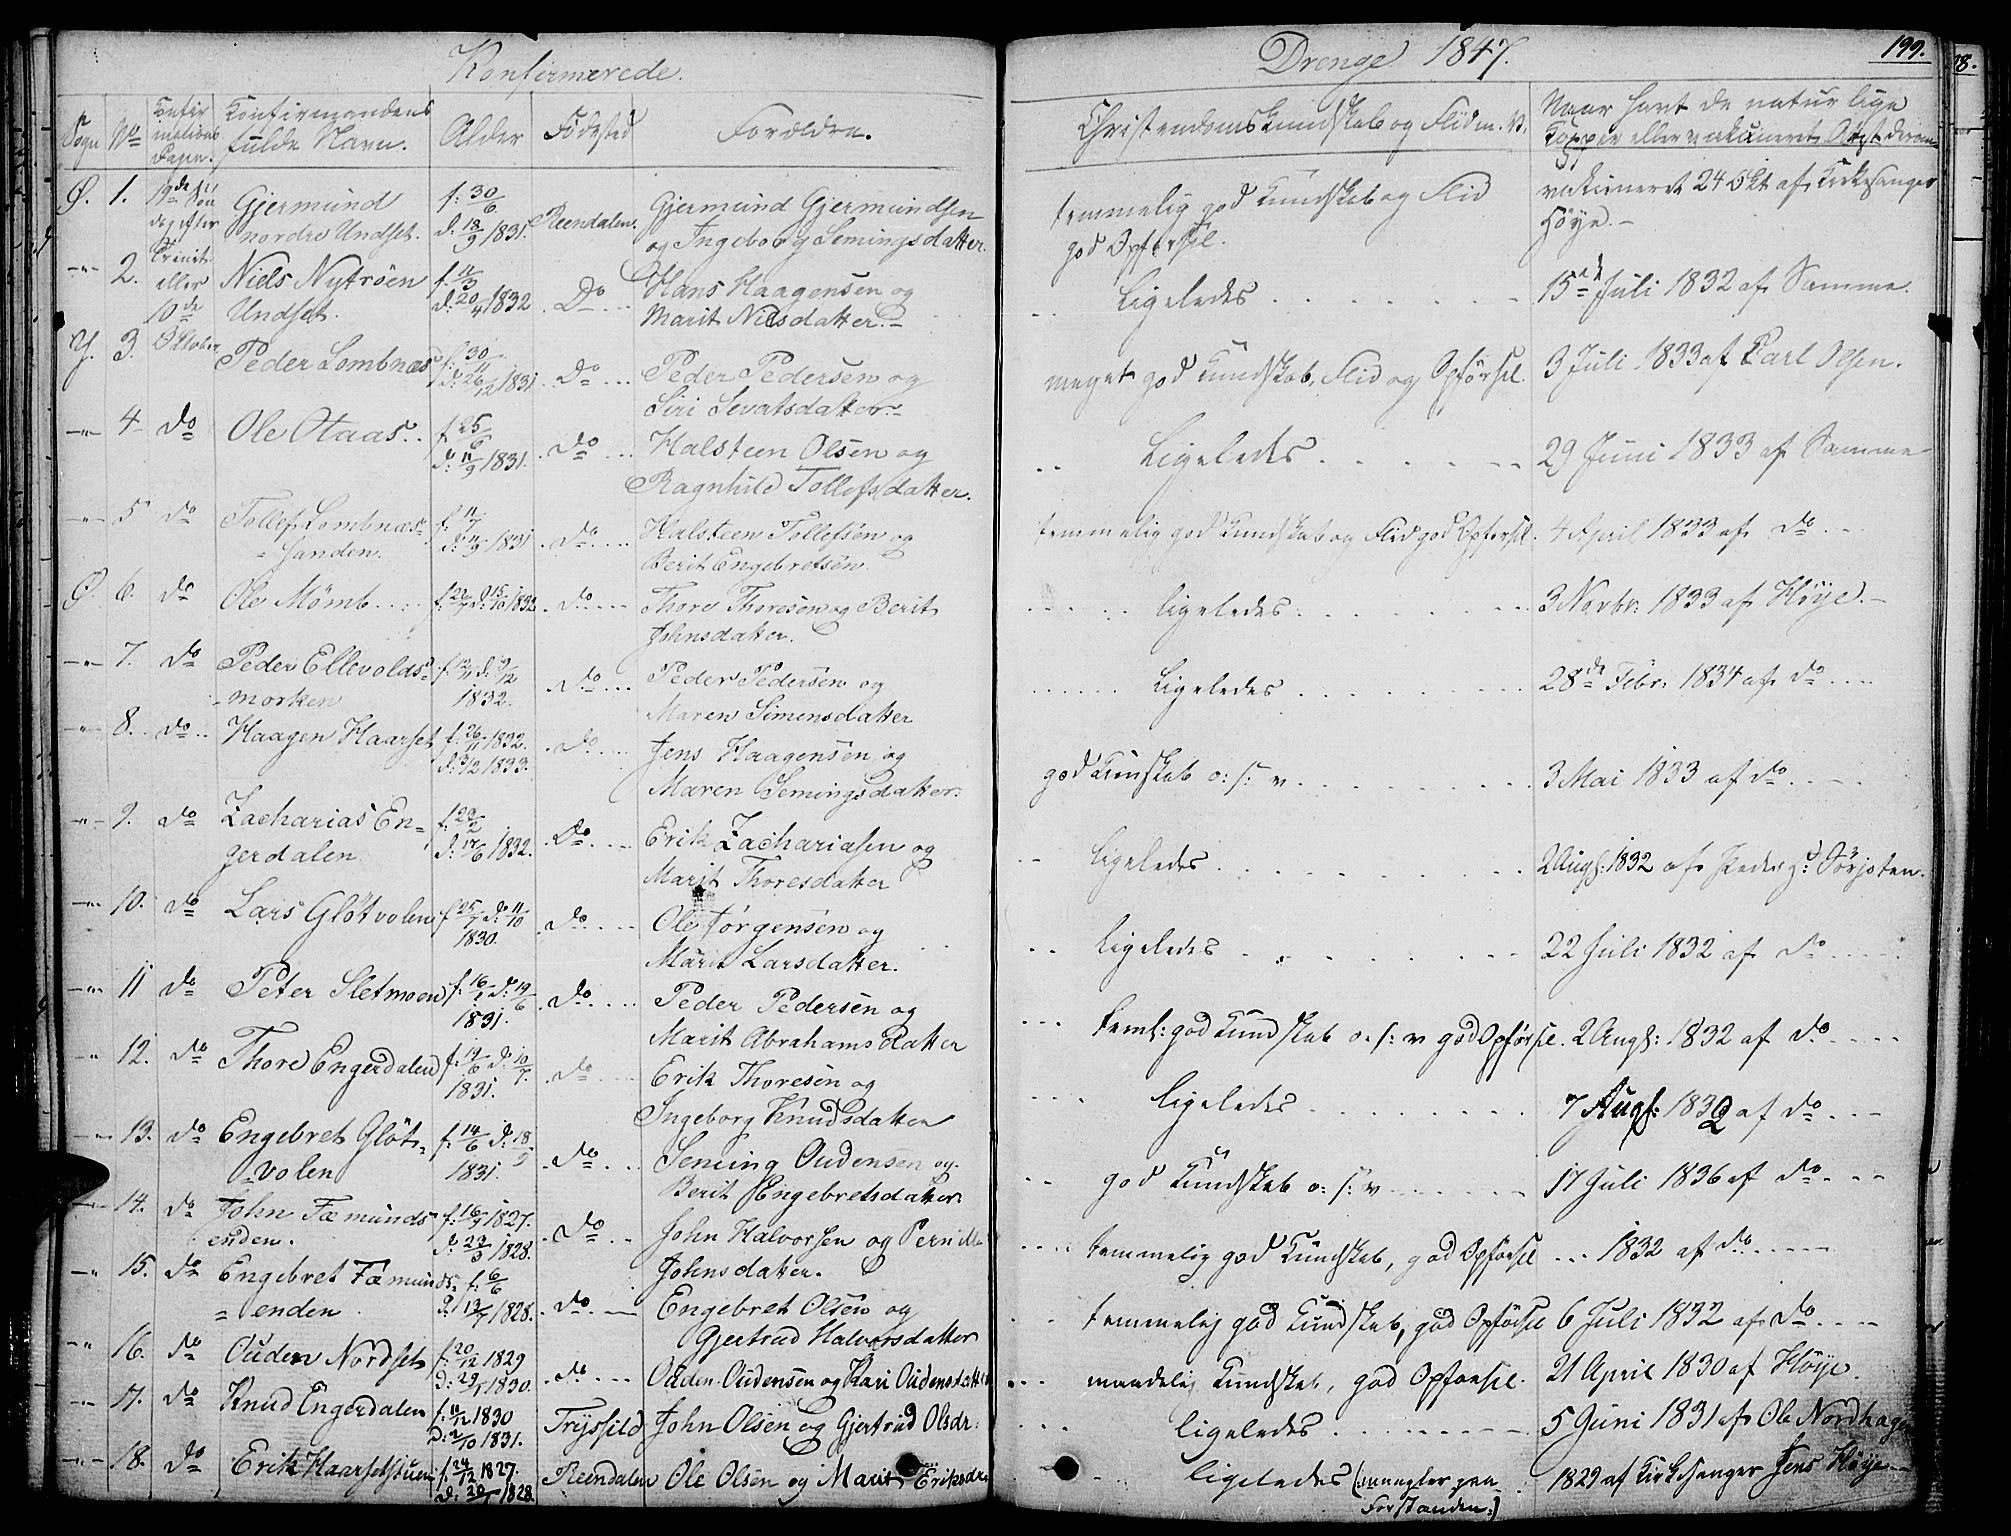 Konfirmerede
Drenge 1847.
199.
Sogn No Konfirmationsdagen. Konfirmandens fulde Navn. Alder Födested Forældre. Christendomskundskab og Flid m. V. Naar havt de naturlige Kopper eller vakcineret, Attest derom
Ø. 1. 19de Søndag efter Trinit eller 10de Oktober Gjermund nordre Undset. f: 30/6 d: 18/9 1831. Reendalen. Gjermund Gjermundsen og Ingeborg Semingsdatter. temmelig god Kundskab og Flid god Opførsel. vakcineret 24 Okt af Kirkesanger Höye.
2. Niels Nytröen Undset. f: 11/3 d: 20/4 1832 Do Hans Haagensen og Marit Nilsdatter. Ligeledes 15de Juli 1832 af Samme.
Y. 3. Peder Lombnæs f: 30/11 d: 26/12 1831 Do Peder Pedersen og Siri Sevatsdatter. meget god Kundskab, Flid og Opførsel 3 Juli 1833 af Carl Olsen.
4 do Ole Otaas f: 25/6 d: 11/9 1831. Do Halsteen Olsen og Ragnhild Tollefsdatter. Ligeledes 29 Juni 1833 af Samme
5 do Tollef Lombnæshanden. f: 11/7 d: 11/9 1831 do Halsteen Tollefsen og Berit Engebretsen. temmelig god Kundskab og Flid god Opførsel. 4 April 1833 af do
Ø 6. do Ole Mömb f: 22/7 d: 15/10 1832 do Thore Thoresen og Berit Johnsdatter. ligeledes 3 Novbr. 1833 af Höye.
7. do Peder Ellevoldsmorken f: 12/11 d: 9/12 1832. Do Peder Pedersen og Maren Simensdatter Ligeledes 28de Febr. 1834 af do
8. do Haagen Haarset f: 26/11 1832. d: 3/2 1833. do Jens Haagensen og Maren Semingsdatter. god Kundskab o: s: v 3 Mai 1833 af do
9. do Zacharias Engerdalen f: 29/2 d: 17/6 1832. Do Erik Zachariasen og Marit Thoresdatter ligeledes 2 Augs: 1832 af Peder
10. do Lars Glötvolen f: 25/7 d: 11/10 1830. do Ole Jörgensen og Marit Larsdatter. ligeledes 22 Juli 1832 af do
11 do Peter Sletmoen f: 16/1 d: 19/6 1831. do Peder Pedersen og Marit Abrahamsdatter teml: god Kundskab o: s: v god Opførsel. 2 Augs: 1832 af do
12. do Thore Engerdalen f: 14/6 d: 10/7. 1831. do Erik Thoresen og Ingeborg Knudsdatter ligeledes 7 Augs: 1832 af do
13. do Engebret Glötvolen f: 14/6 d: 18/9 1831. do Seming Oudensen og Berit Engebretsdatter god Kundskab o: s: v 17 Juli 1836 af do
14. do John Fæmundsenden. f: 16/9 1827. d: 23/3 1828. do John Halvorsen og Pernille Johnsdatter. temmelig god Kundskab, god Opførsel 1832 af do
15. do Engebret Fæmundsenden f: 6/6 d: 13/7 1828. do Engebret Olsen og Gjertrud Halvorsdatter temmelig god Kundskab, god Opførsel 6 Juli 1832 af do
16. do Ouden Nordset f: 20/12 1829 d: 29/1 1830. do Ouden Oudensen og Kari Oudensdatter maadelig Kundskab, god Opførsel. 21 April 1830 af Höye.
17. do Knud Engerdalen f: 11/12 1830 d: 2/10 1831. Tryssild John Olsen og Gjertrud Olsdr: ligeledes 5 Juni 1831 af Ole Nordhagen
18. do Erik Haarsetstuen f: 24/12 1827. 1828. Reendalen Ole Olsen og Marit Eriksdr. ligeledes (mangler paa Forstanden.) 1829 af Kirkesanger Jens Höye